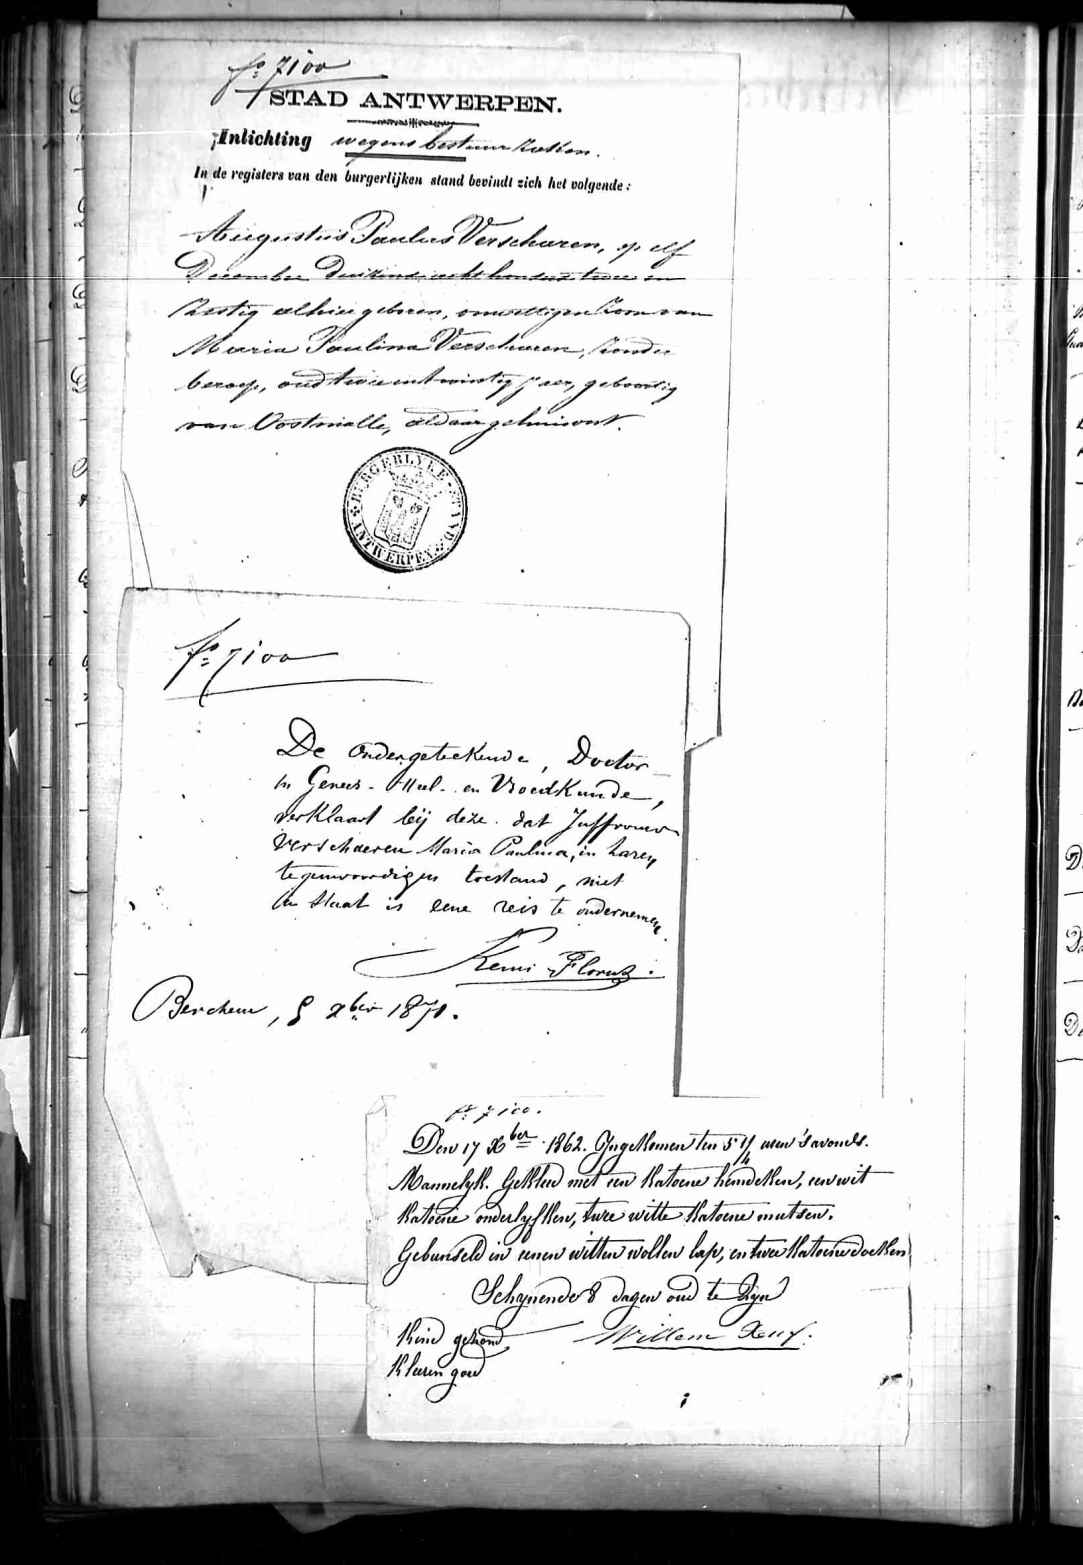 fº 7100
STAD ANTWERPEN.
Inlichting wegens bestuurzaken.
In de registers van den burgerlijken stand bevindt zich het volgende:
Augustus Paulus Verschuren, op elf
December duizend acht honderd twee en
zestig alhier geboren, onwettigen zoon van
Maria Paulina Verschuren, zonder
beroep, oud twee en twintig jaer, geboortig
van Oostmalle, aldaar gehuisvest.
BURGERLYKE STAND
ANTWERPEN
fº 7100
De ondergeteekende, Doctor
in Genees- Heel- en Vroedkunde,
verklaart bij deze dat Juffrouw
Verschaeren Maria Paulina, in haren
tegenwoordigen toestand, niet
in staat is eene reis te ondernemen.
Remi Florus.
Berchem, 5 xber 1871.
fº 7100.
Den 17 Xber 1862. Ingekomen ten 5 1/4 uren 's avonds.
Mannelyk. Gekleed met een katoene hemdeken, een wit
katoene onderlyfken, twee witte katoene mutsen.
Gebunseld in eenen witten wollen lap, en twee katoene doeken
Schynende 8 dagen oud te zyn
Kind gezond Willem
Kleeren goed